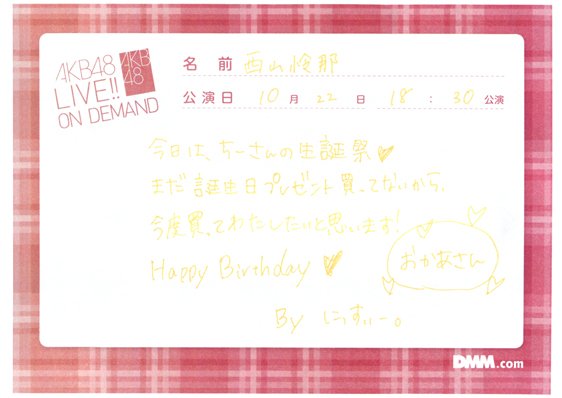 AKB48
LIVE!!
ON DEMAND
AKB
48
名 前 西山怜那
公演日 10月 22日 18 : 30公演
今日は、ちーさんの生誕祭
まだ誕生日プレゼント買ってないから、
今度買ってわたしたいと思います!
Happy Birthday
おかあさん
By にっすぃー。
DMM.com